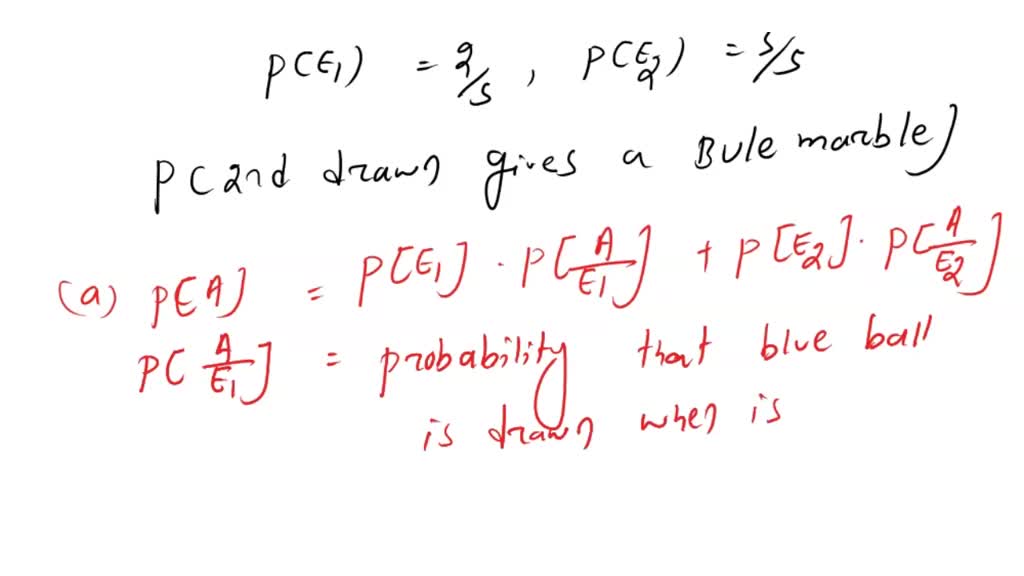 P(E1) = 2/5 , P(E2) = 3/5
P(2nd drawn gives a Bule marble)
(a) P[A] = P[E1] · P[A/E1] + P[E2] · P[A/E2]
P[A/E1] = probability that blue ball
is drawn when is